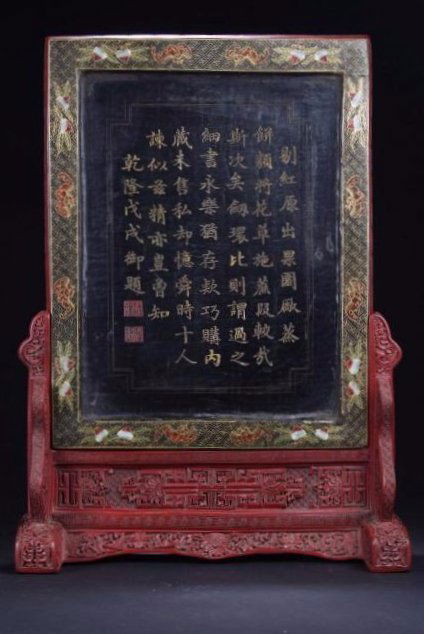 剔紅原出果園厰蒸
餅類將花草施蔗段較哉
斯次矣劔環比則謂過之
細書永樂猶存款巧購內
藏未售私却憶舜時十人
諫似茲精亦豈曾知
乾隆戊戌御題